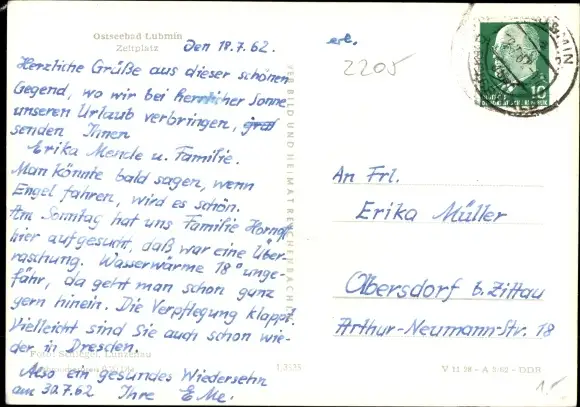 Ostseebad Lubmin
Zeltplatz
den 18.7.62.
Herzliche Grüße aus dieser schönen
Gegend, wo wir bei herrlicher Sonne
unseren Urlaub verbringen,
senden Ihnen
Erika Mencle u. Familie.
Man könnte bald sagen, wenn
Engel fahren, wird es schön.
Am Sonntag hat uns Familie
hier aufgesucht, daß war eine Über-
raschung. Wasserwärme 18° unge-
fähr, da geht man schon ganz
gern hinein. Die Verpflegung klappt.
Vielleicht sind Sie auch schon wie-
der in Dresden.
Also ein gesundes Wiedersehn
am 30.7.62 Ihre E. Me.
Foto: Schlegel, Lunzenau
VEB BILD UND HEIMAT REICHENBACH
erl.
2205
10
An Frl.
Erika Müller
Olbersdorf b. Zittau
Arthur-Neumann-Str. 18
DDR
1.-